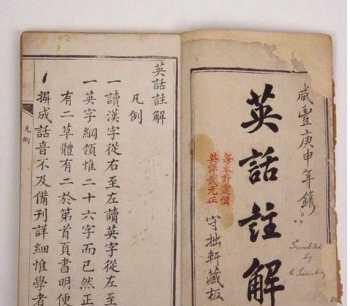 咸豐庚申年鐫
英話註解
守拙軒藏板
英話註解
凡例
一讀漢字從右至左讀英字從左至
一英字綱領惟二十六字而已然正
有二草體有二於第首頁書明便
撰成話音不及備刊詳細惟學者
凡例